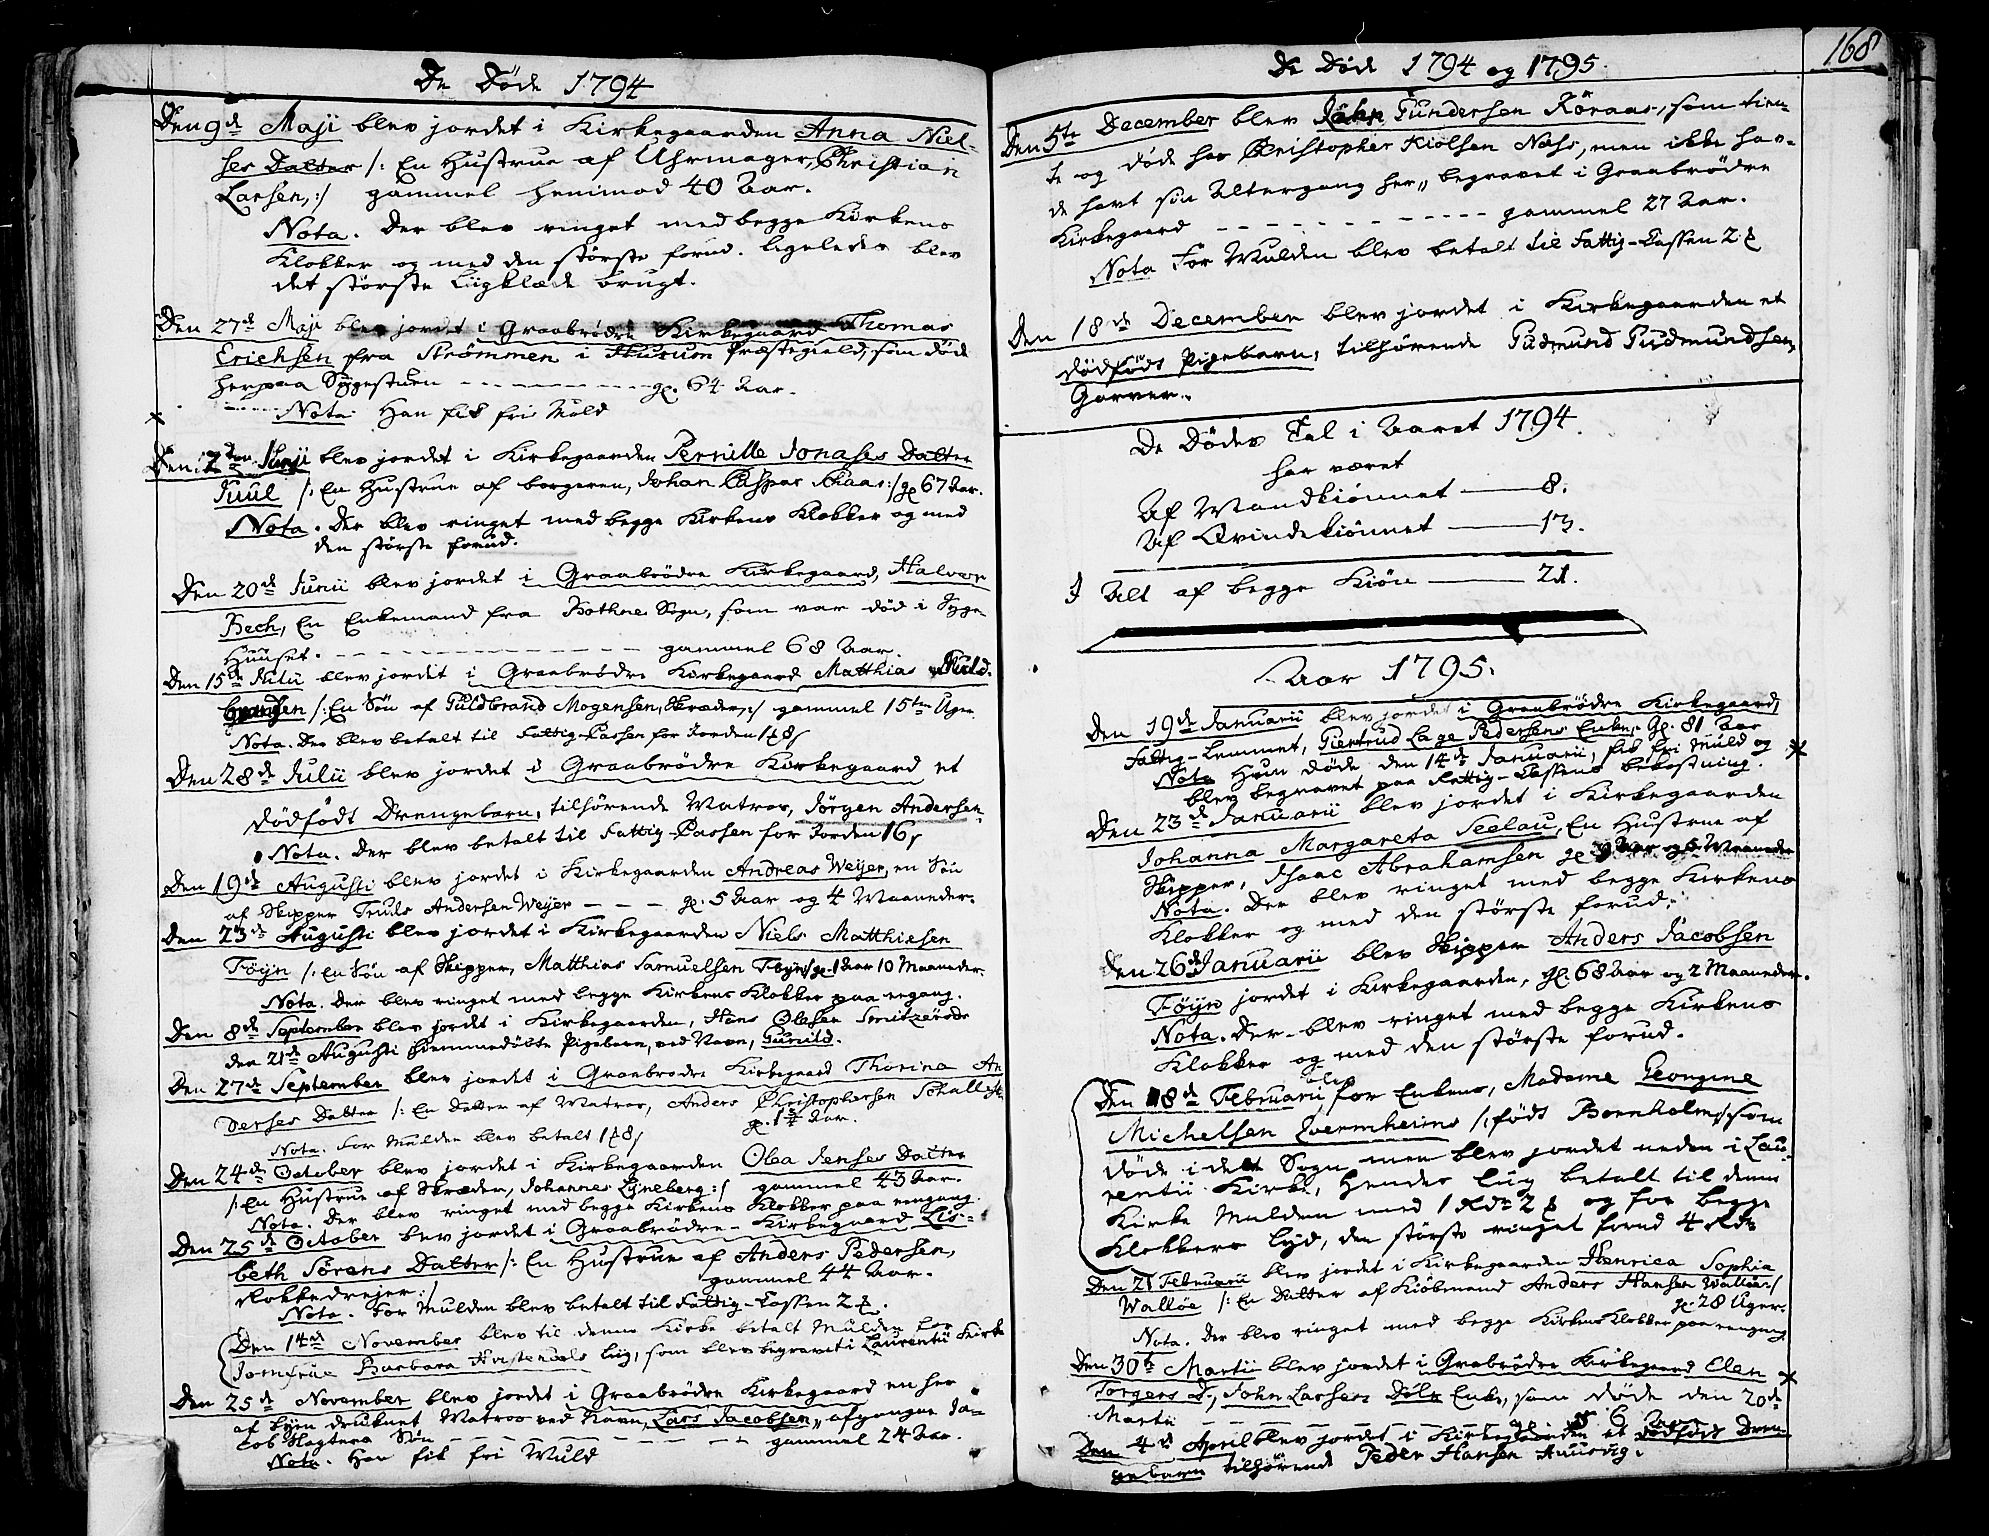 De Döde 1794
Den 9de Maji blev jordet i Kirkegaarden Anna Niel-
ses Datter /: En Hustrue af Uhrmager, Christian
Larsen, :/ gammel henimod 40 Aar.
Nota. Der blev ringet med begge Kirkens
Klokker og med den störste forud. ligeledes blev
det störste Liigklæde brugt.
Den 27de Maji blev jordet i Graabrödre Kirkegaard Thomas
Erichsen fra Strömmen i Hurum Præstegield, som döde
her paa Sygestuen - - - - gl. 64 Aar.
Nota. Han fik fri Muld
Den 2den Junji blev jordet i Kirkegaarden Pernille Jonases Datter
Juul /: En Hustrue af borgeren, Johan Caspar Klaas :/ gl. 67 Aar.
Nota. Der blev ringet med begge Kirkens Klokker og med
den störste forud.
Den 20de Junii blev jordet i Graabrödre Kirkegaard, Halvor
Bech, En Enkemand fra Bothne Sogn, som var död i Syge-
Huuset. - - - - gammel 68 Aar.
Den 15de Julii blev jordet i Graabrödre Kirkegaard Matthias Guld-
brandsen /: En Sön af Guldbrand Mogensen, Skræder, :/ gammel 15ten Uger.
Nota. Der blev betalt til Fattig-Cassen for Jorden
Den 28de Julii blev jordet i Graabrödre Kirkegaard et
dödfödt Drengebarn, tilhörende Matros, Jörgen Andersen.
Nota. Der blev betalt til Fattig-Cassen for Jorden 16
Den 19de Augusti blev jordet i Kirkegaarden Andreas Weyer, en Sön
af Skipper Truls Andersen Weyer - - - gl. 5 Aar og 4 Maaneder.
Den 23de Augusti blev jordet i Kirkegaarden Niels Matthiesen
Föyn /: En Sön af Skipper, Matthias Samuelsen Föyn :/ gl. 1 Aar 10 Maaneder.
Nota. Der blev ringet med begge Kirkens Klokker paa engang.
Den 8de September blev jordet i Kirkegaarden, Hans Olesen
den 21de Augusti hiemmedöbte Pigebarn, ved Navn, Gunild.
Den 27de September blev jordet i Graabrödre Kirkegaard Thorina An
derses Datter /: En Datter af Matros, Anders Christophersen
gl. 1½ Aar.
Nota. For Mulden blev betalt
Den 24de October blev jordet i Kirkegaarden Olea Jenses Datter
/: En Hustrue af Skræder, Johannes Lyneberg :/ gammel 43 Aar.
Nota. Der blev ringet med begge Kirkens Klokker paa engang.
Den 25de October blev jordet i Graabrödre-Kirkegaard Lis-
beth Sörens Datter /: En Hustrue af Anders Pedersen,
Blokkedrejer :/ gammel 44 Aar.
Nota. For Mulden blev betalt til Fattig-Cassen 2
Den 14de November blev til denne Kirke betalt Mulden for
Jomfrue Barbara Liig, som blev begravet i Laurentii Kirke
Den 25de November blev jordet i Graabrödre Kirkegaard en her
af byen druknet Matros ved Navn, Lars Jacobsen, afgangne Ja-
cob Slagters Sön - - - - gammel 24 Aar.
Nota. Han fik fri Muld
De Döde 1794 og 1795.
168
Den 5te December blev Gundersen Röraas, som tien-
te og döde hos Christopher Kiölsen Næss, men ikke hav-
de havt sin Altergang her, begravet i Graabrödre
Kirkegaard - - - - gammel 27 Aar.
Nota For Mulden blev betalt til Fattig-Cassen 2
Den 18de December blev jordet i Kirkegaarden et
dödfödt Pigebarn, tilhörende Gudmund Gudmundsen,
Garver.
De Dödes Tal i Aaret 1794.
har været
Af Mandkiönnet - 8.
Af Qvindekiönnet - 13.
I Alt af begge Kiön - 21.
Aar 1795.
Den 19de Januarii blev jordet i Graabrödre Kirkegaard,
Fattig-Lemmet, Giertrud Lage Pedersens Enke, gl. 81 Aar
Nota Hun döde den 14de Januarii, fik fri Muld og
blev begravet paa Fattig-Cassens bekostning.
Den 23de Januarii blev jordet i Kirkegaarden
Johanna Margareta Seelau, En Hustrue af
Skipper, Isaac Abrahamsen
Nota. Der blev ringet med begge Kirkens
Klokker og med den störste forud.
Den 26de Januarii blev Skipper Anders Jacobsen
Föyn jordet i Kirkegaarden, gl. 68 Aar og 2 Maaneder.
Nota. Der blev ringet med begge Kirkens
Klokker og med den störste forud.
Den 18de Februarii blev for Enkens, Madame Georgine
Michelsen /: födt Bornholm :/ som
döde i dette Sogn men blev jordet neden i Lau-
rentii Kirke, Hendes Liig betalt til denne
Kirke Mulden med 1 Rdr 2 og for begge
Klokkers lyd, den störste ringet forud 4 Rdr
Den 21 Februarii blev jordet i Kirkegaarden Henrica Sophia
Wallöe /: En Datter af Kiöbmand Anders Hansen Wallöe :/
gl. 28 Uger.
Nota. Der blev ringet med begge Kirkens Klokker paa engang
Den 30te Martii blev jordet i Graabrödre Kirkegaard Elen
Torgers D., John Larsens Enke, som döde den 20de
Martii - - - - Aar
Den 4de April blev jordet i Kirkegaarden et dödfödt Dren-
gebarn tilhörende Peder Hansen